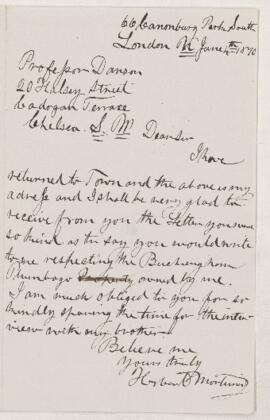 66 Canonbury Park South
London N June 4th 1870
Professor Danson
20 Halsey Street
Cadogan Terrace
Chelsea. S. W Dear Sir
I have
returned to Town and the above is my
adress and I shall be very glad to
receive from you the Letter you were
so kind as to say you would write
to me respecting the
Plumbago Property owned by me.
I am much obliged to you for so
kindly sparing the time for the inter-
view with my brother.
Believe me
yours truly
Herbert